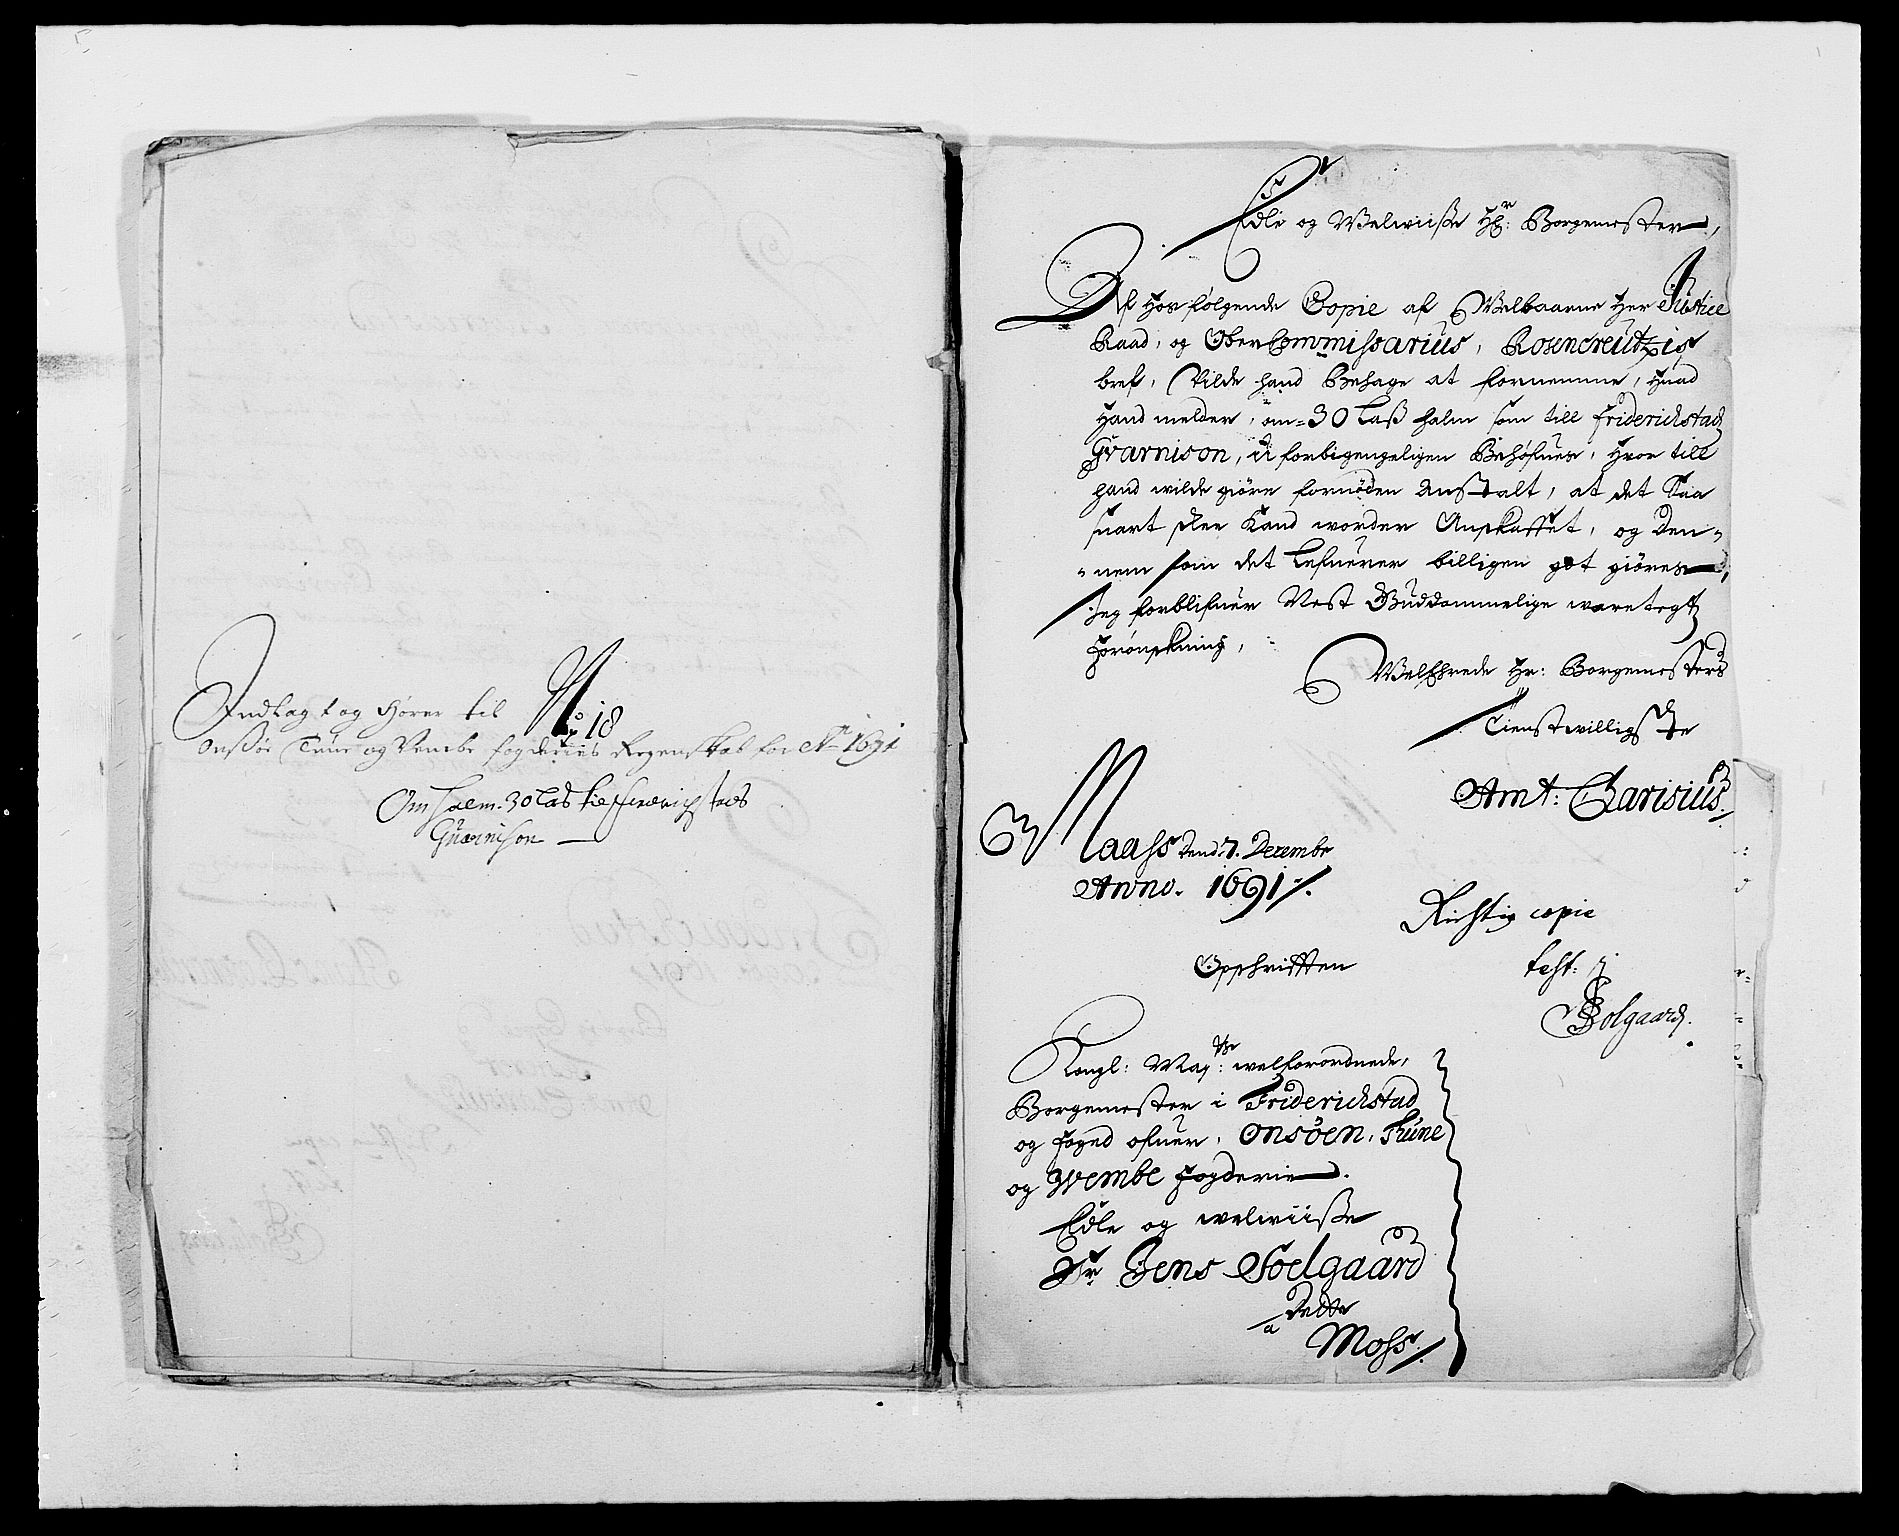 Indlagt og hører til No 18
Onsøe Tune og Vembe fogderies Regenskab for Ao 1691
Om halm. 30 las til friderichstads
Guarnison
Edle og Welwiisse Hr: Borgemester,
Af Hos følgende Copie af Welbaarne Her Justice
Raad, og Ober Commissarius, Rosencreutzis
bref, Vilde hand Behage at fornemme, Huad
Hand melder, om = 30 Lass halm som till friderichstad
Guarnison, u forbigengeligen Behøfues, Hvor till
hand wilde giøre fornøden Anstalt, at det Saa
snart skee Kand worder Anskaffet, og Den-
-nem som det Lefuerer billigen got giøres,
Jeg forblifuer Nest Guddommelige waretegts
Forønskning,
WelEhrede Hr: Borgemesters
Tienstwilligste
Amt: Carisius.
Maass Dend 7. Decembr
Anno. 1691 /.
Richtig copie
test:
JSolgaard.
Opschrifften
Kongl: May:ts welforordnede,
Borgemester i Friderichstad
og foged ofuer, Onsøen, Thune
og Wembe fogderie.
Edle og welwiisse
Sr Jens Soelgaard
Dette
a
Moss /.